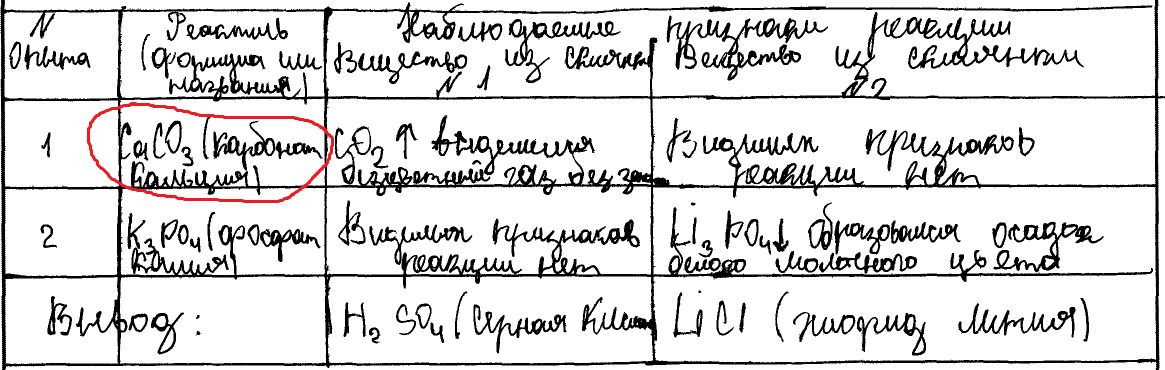 N
Опыта
Реактив
(формула или
название)
Наблюдаемые признаки реакции
Вещество из склянки
N 1
Вещество из склянки
N 2
1
CaCO3 (карбонат
кальция)
CO2↑ выделился
бесцветный газ без
Видимых признаков
реакции нет
2
K3PO4 (фосфат
калия)
Видимых признаков
реакции нет
Li3PO4↓ Образовался осадок
белого молочного цвета
Вывод:
H2SO4 (серная
LiCl (хлорид лития)